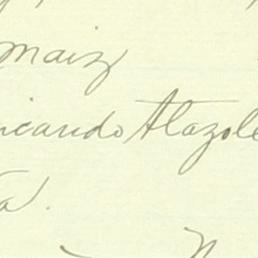 maiz
icando Atazole
a.